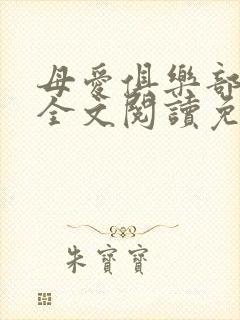 母愛俱樂部
全文閱讀免
朱寶寶